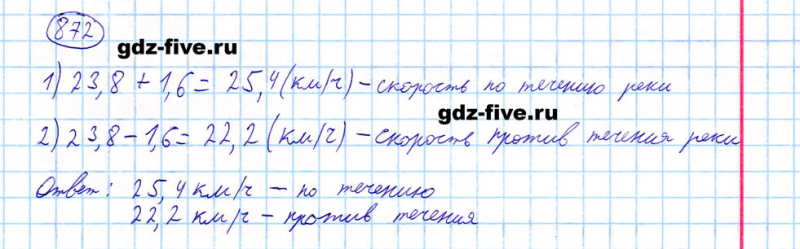 872
gdz-five.ru
1) 23,8 + 1,6 = 25,4 (км/ч) - скорость по течению реки
gdz-five.ru
2) 23,8 - 1,6 = 22,2 (км/ч) - скорость против течения реки
Ответ: 25,4 км/ч - по течению
22,2 км/ч - против течения